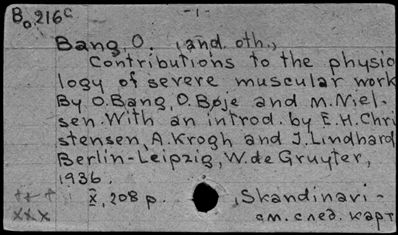 Bo 216c -1-
Bang, O. (and oth.,
Contributions to the physio
logy of severe muscular work
By O. Bang, O. Bøje and M. Niel-
sen. With an introd. by E. H. Chri
stensen, A. Krogh and J. Lindhard
Berlin-Leipzig, W. de Gruyter,
1936.
X, 208 p. (Skandinavi-
см. след. карт
xxx